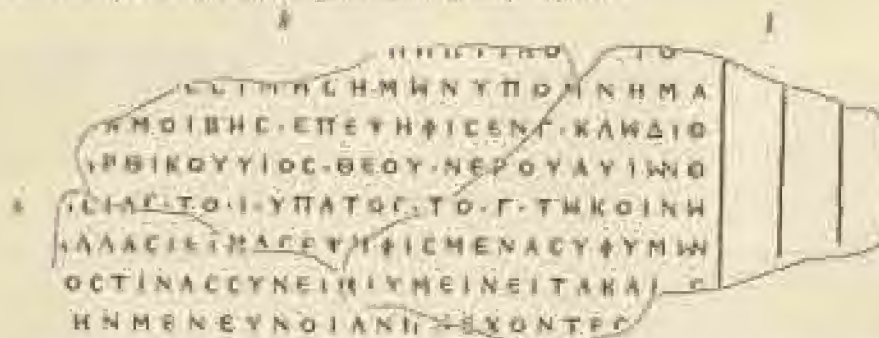 ΗΜΩΝΥΠΟΜΝΗΜΑ
ΑΜΟΙΒΗϹ·ΕΠΕΨΗΦΙϹΕΝΓ·ΚΛΩΔΙΟ
ΡΘΙΚΟΥΥΙΟϹ·ΘΕΟΥ·ΝΕΡΟΥΑΥΙΩΝΟ
ϹΙΑϹ·ΤΟ·Ι·ΥΠΑΤΟϹ·ΤΟ·Γ·ΤΗΚΟΙΝΗ
ΛΛΑϹΙΕΙΜΑϹΕΨΗΦΙϹΜΕΝΑϹΥΦΥΜΩΝ
ΟϹΤΙΝΑϹϹΥΝΕΙΗΙΥΜΕΙΝΕΙΤΑΚΑΙ Ϲ
ΗΝΜΕΝΕΥΝΟΙΑΝ ΕΧΟΝΤΕϹ